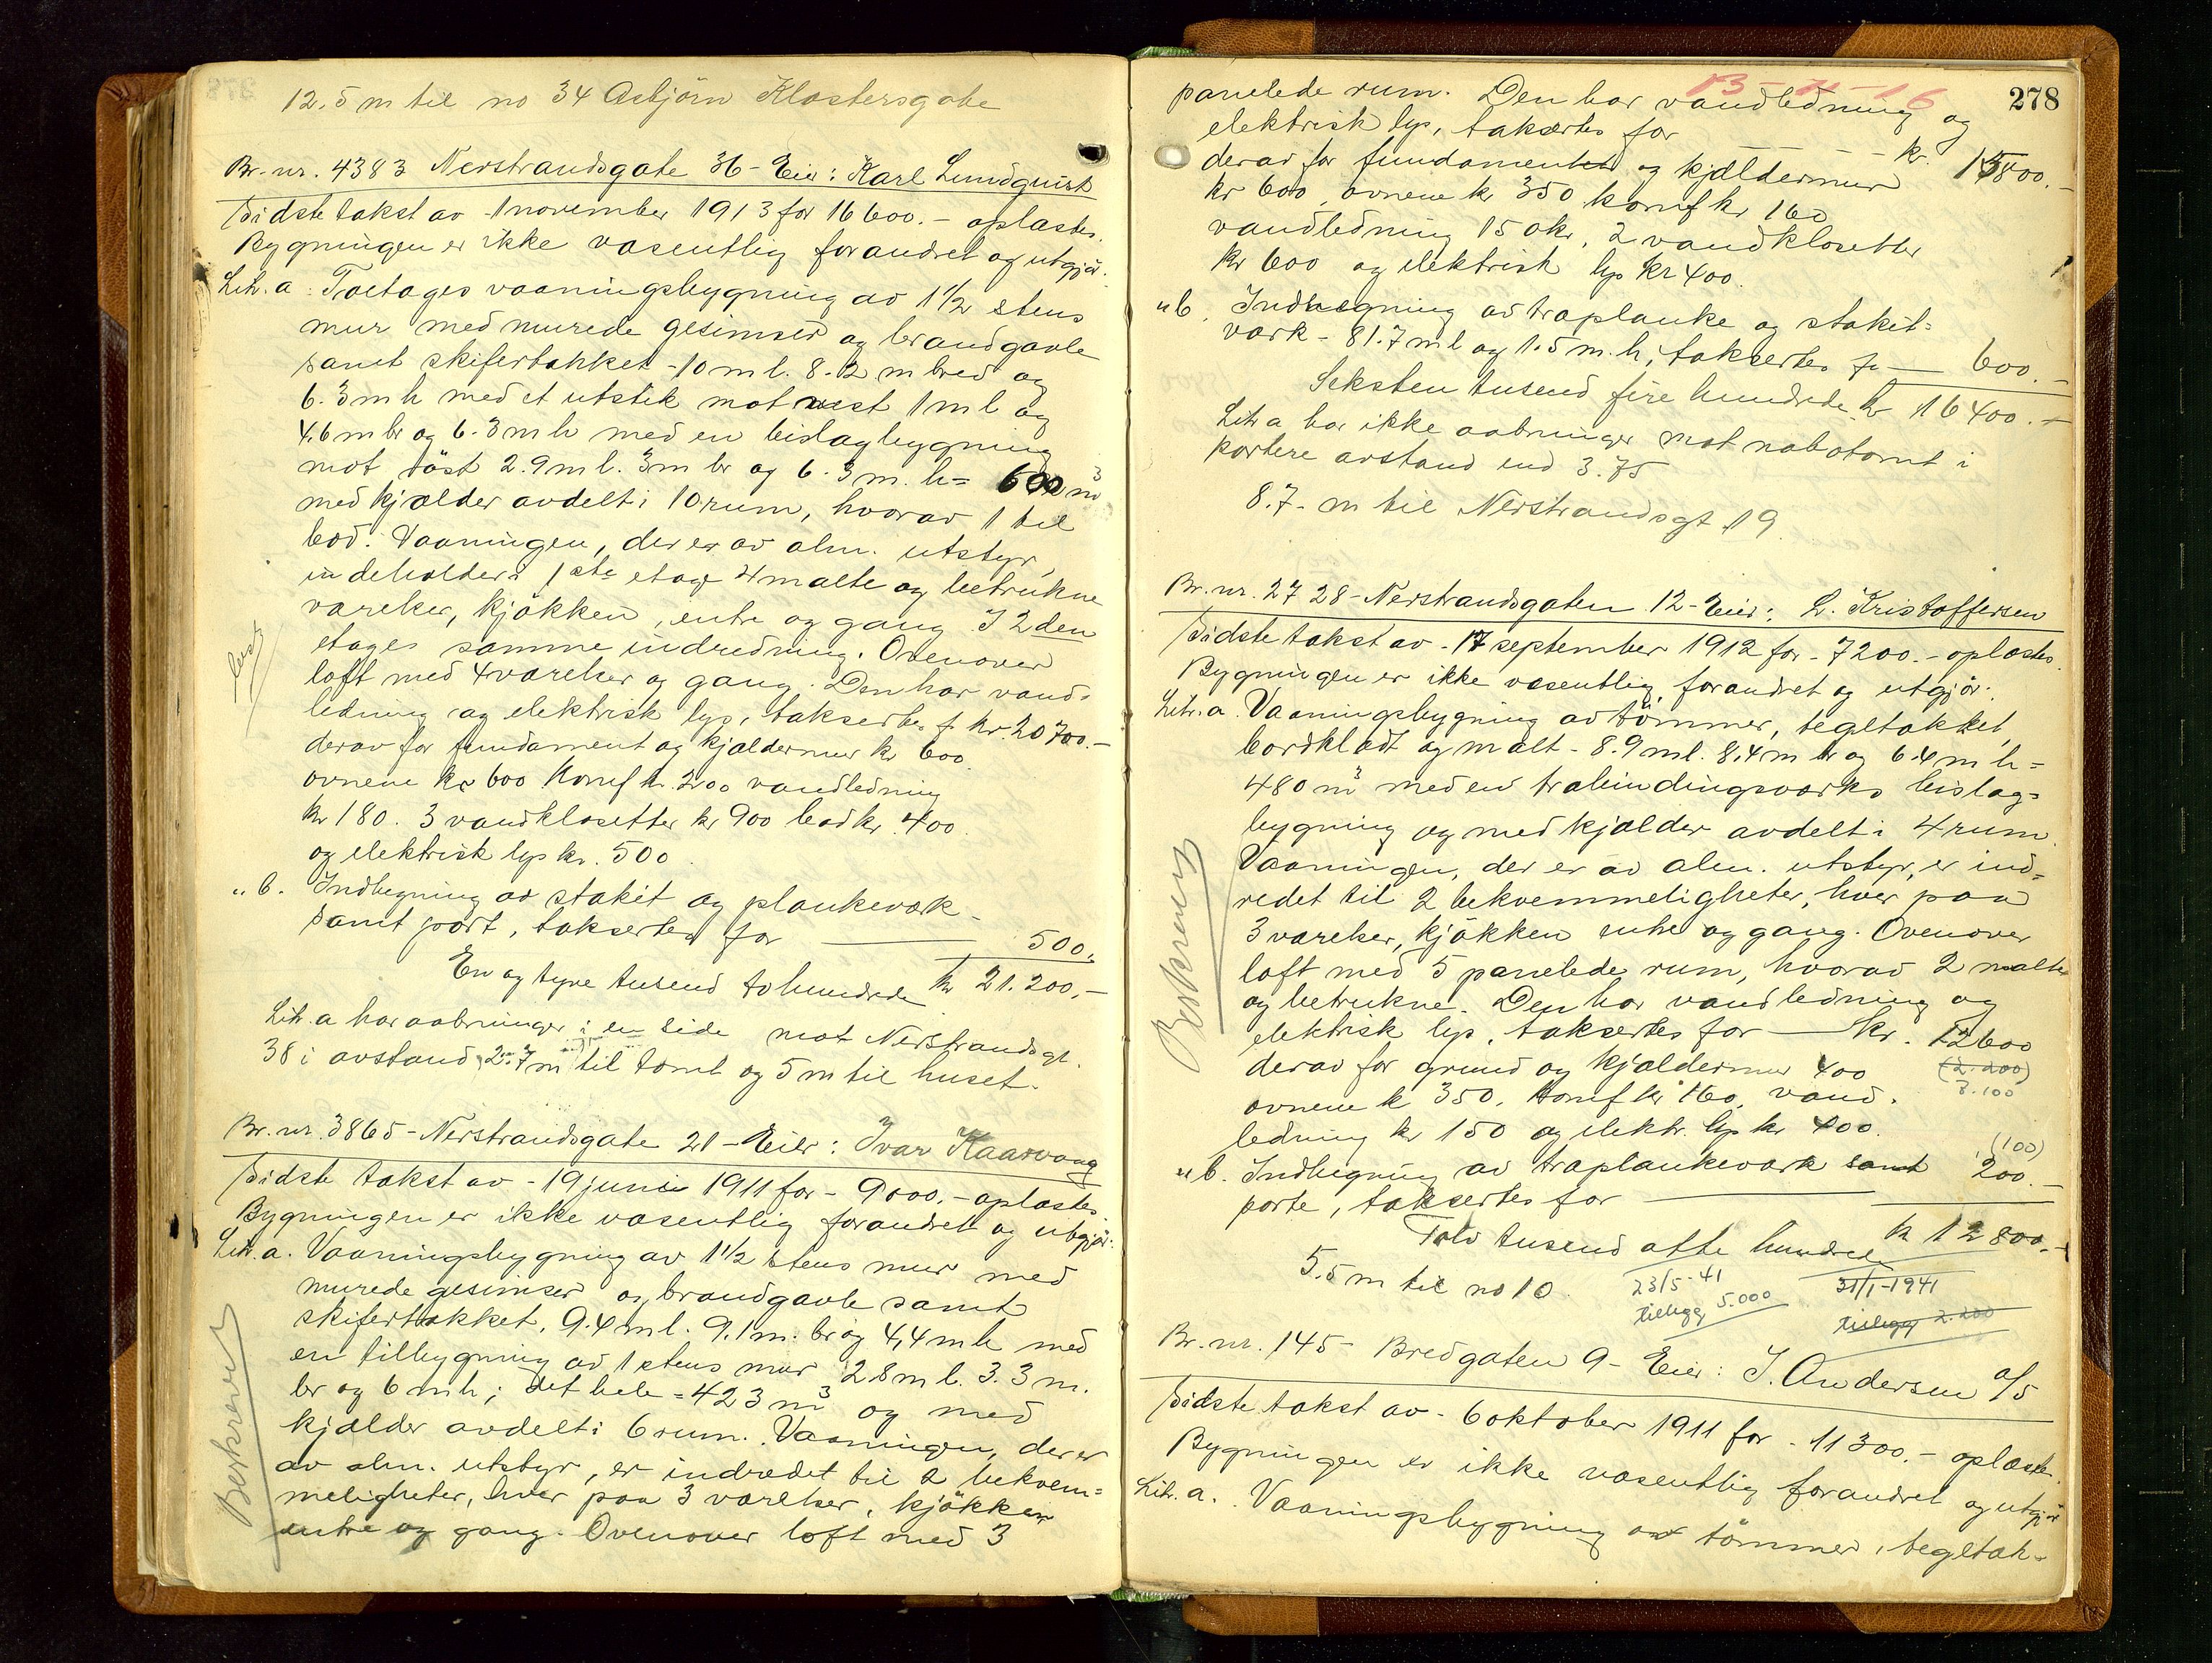 12.5 m til no 34 Asbjörn Klostersgate
Br. nr. 4383 Nerstrandsgate 36 - Eier: Karl Lundquist
Sidste takst av 1 november 1913 for 16600.- oplæstes.
Bygningen er ikke væsentlig forandret og utgjör:
Litr. a. Toetages vaaningsbygning av 1 1/2 stens
mur med murede gesimser og brandgavle
samt skifertækket - 10 m l. 8.2 m bred og
6.3 m h med et utstik mot vest 1 m l og
4,6 m br og 6.3 m h med en bislagbygning
mot öst 2.9 m l. 3 m br og 6.3 m. h = 600 m3
med kjælder avdelt i 10 rum, hvorav 1 til
bod. Vaaningen, der er av alm. utstyr,
indeholder i 1ste etage 4 malte og betrukne
værelser, kjökken, entre og gang. I 2den
etages samme indredning. Ovenover
loft med 4 værelser og gang. Den har vand-
ledning og elektrisk lys, taksertes f. kr. 20700.-
derav for fundament og kjældermur kr 600
ovnene kr 600 komf kr. 200 vandledning
kr 180. 3 vandklosetter kr 900 bad kr. 400
og elektrisk lys kr. 500.
" b. Indhegning av stakit og plankeværk
samt port, taksertes for 500.
En og tyve tusend to hundrede kr 21.200.-
Litr. a har aabninger i en side mot Nerstrandsgt.
38 i avstand 2.7 m til tomt og 5 m til huset.
Br. nr. 3865 - Nerstrandsgate 21 - Eier: Ivar Kaarvaag
Sidste takst av - 19 juni 1911 for - 9000.- oplæstes.
Bygningen er ikke væsentlig forandret og utgjör:
Litr. a. Vaaningsbygning av 1 1/2 stens mur med
murede gesimser og brandgavle samt
skifertækket. 9.4 m l. 9.1 m. br og 4,4 m h med
en tilbygning av 1 stens mur 2.8 m l. 3.3 m.
br og 6 m h; det hele = 423 m3 og med
kjælder avdelt i 6 rum. Vaaningen, der er
av alm. utstyr, er indredet til 2 bekvem=
meligheter, hver paa 3 værelser, kjökken
entre og gang. Ovenover loft med 3
Beskrevet
13-11-16
278
panelede rum. Den har vandledning og
elektrisk lys, taksertes for kr. 15800.-
derav for fundament og kjældermur
kr 600, ovnene kr 350 komf kr 160
vandledning 150 kr, 2 vandklosetter
kr 600 og elektrisk lys kr 400.
" b. Indhegning av træplanke og stakit=
værk - 81.7 m l og 1.5 m. h, taksertes for 600.-
Seksten tusend fire hundrede kr 16400.-
Litr a har ikke aabninger mot nabotomt i
kortere avstand end 3.75
8.7. m til Nerstrandsgt 19.
Br. nr. 2728 - Nerstrandsgaten 12 - Eier: L. Kristoffersen
Sidste takst av - 17 september 1912 for - 7200.- oplæstes.
Bygningen er ikke væsentlig forandret og utgjör:
Litr. a. Vaaningsbygning av tömmer, tegltækket,
bordklædt og malt - 8.9 m l. 8,4 m br og 6.4 m h =
480 m3 med en træbindingsværks bislag=
bygning og med kjælder avdelt i 4 rum
Vaaningen, der er av alm. utstyr, er ind=
redet til 2 bekvemmeligheter, hver paa
3 værelser, kjökken entre og gang. Ovenover
loft med 5 panelede rum, hvorav 2 malte
og betrukne. Den har vandledning og
elektrisk lys, taksertes for kr. 12600
derav for grund og kjældermur 400 (2.200)
ovnene kr 350, komf kr 160, vand- 7.100
ledning kr 150 og elektr. lys kr 400.
" b. Indhegning av træplankeværk samt (100)
porte, taksertes for 200.-
Tolv tusend otte hundrede kr 12800.-
5.5 m til no 10
23/5-41 31/1-1941
tillegg 5.000 tillegg 2.200
Beskrevet
Br. nr. 145 - Bredgaten 9 - Eier: J. Andersen a/s
Sidste takst av - 6 oktober 1911 for - 11300.- oplæstes.
Bygningen er ikke væsentlig forandret og utgjör
Litr. a. Vaaningsbygning av tömmer, tegltæk=